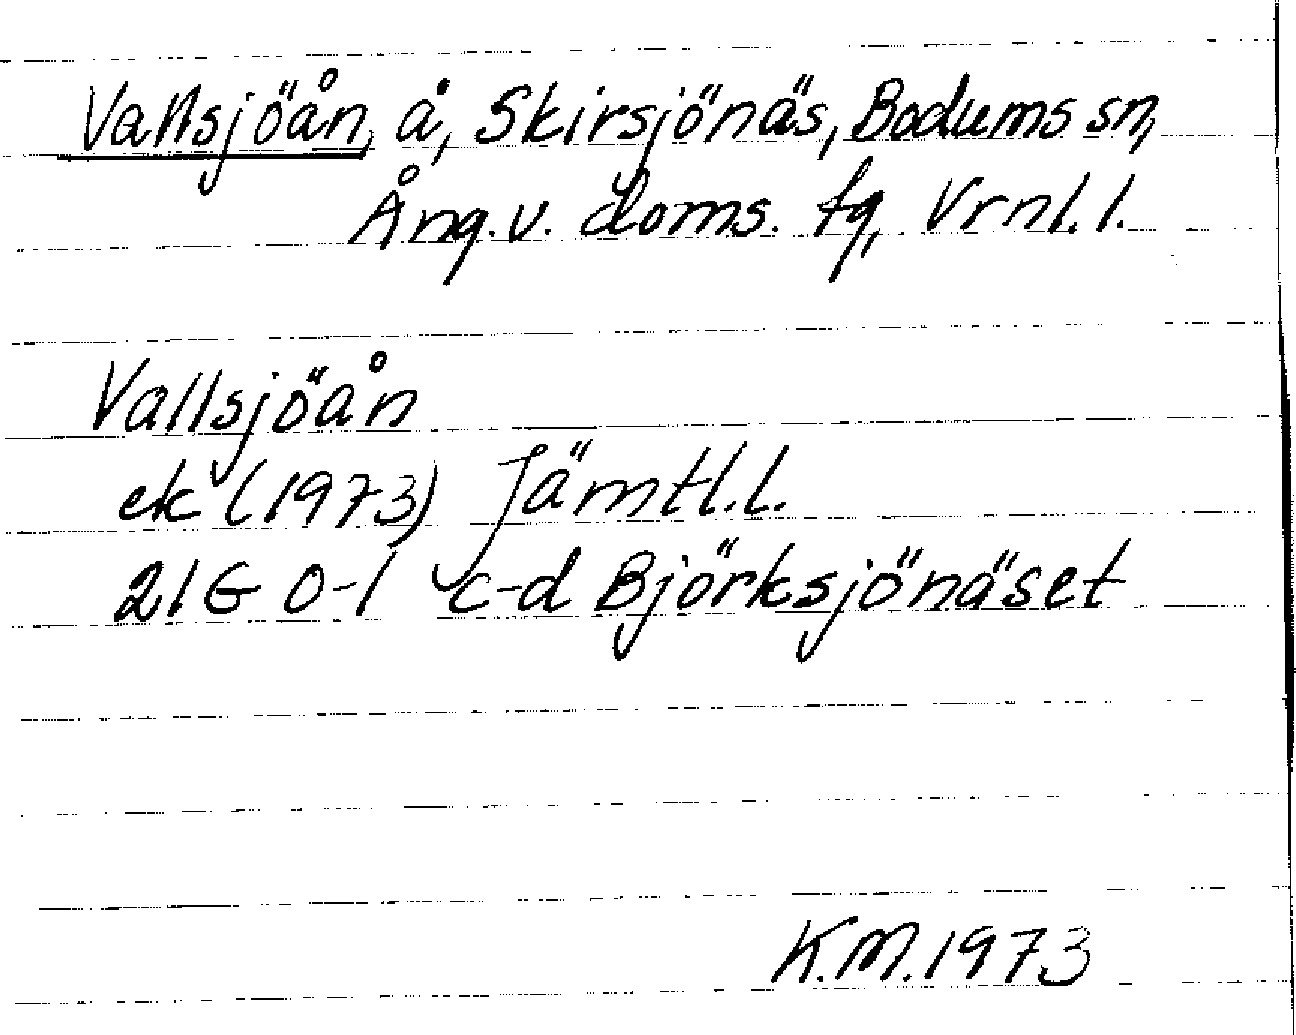 Vallsjöån, å, Skirsjönäs, Bodums sn,
Ång. v. doms. tg, Vrnl. l.
Vallsjöån
ek (1973) Jämtl. l.
21G 0-1 c-d Björksjönäset
K.M. 1973